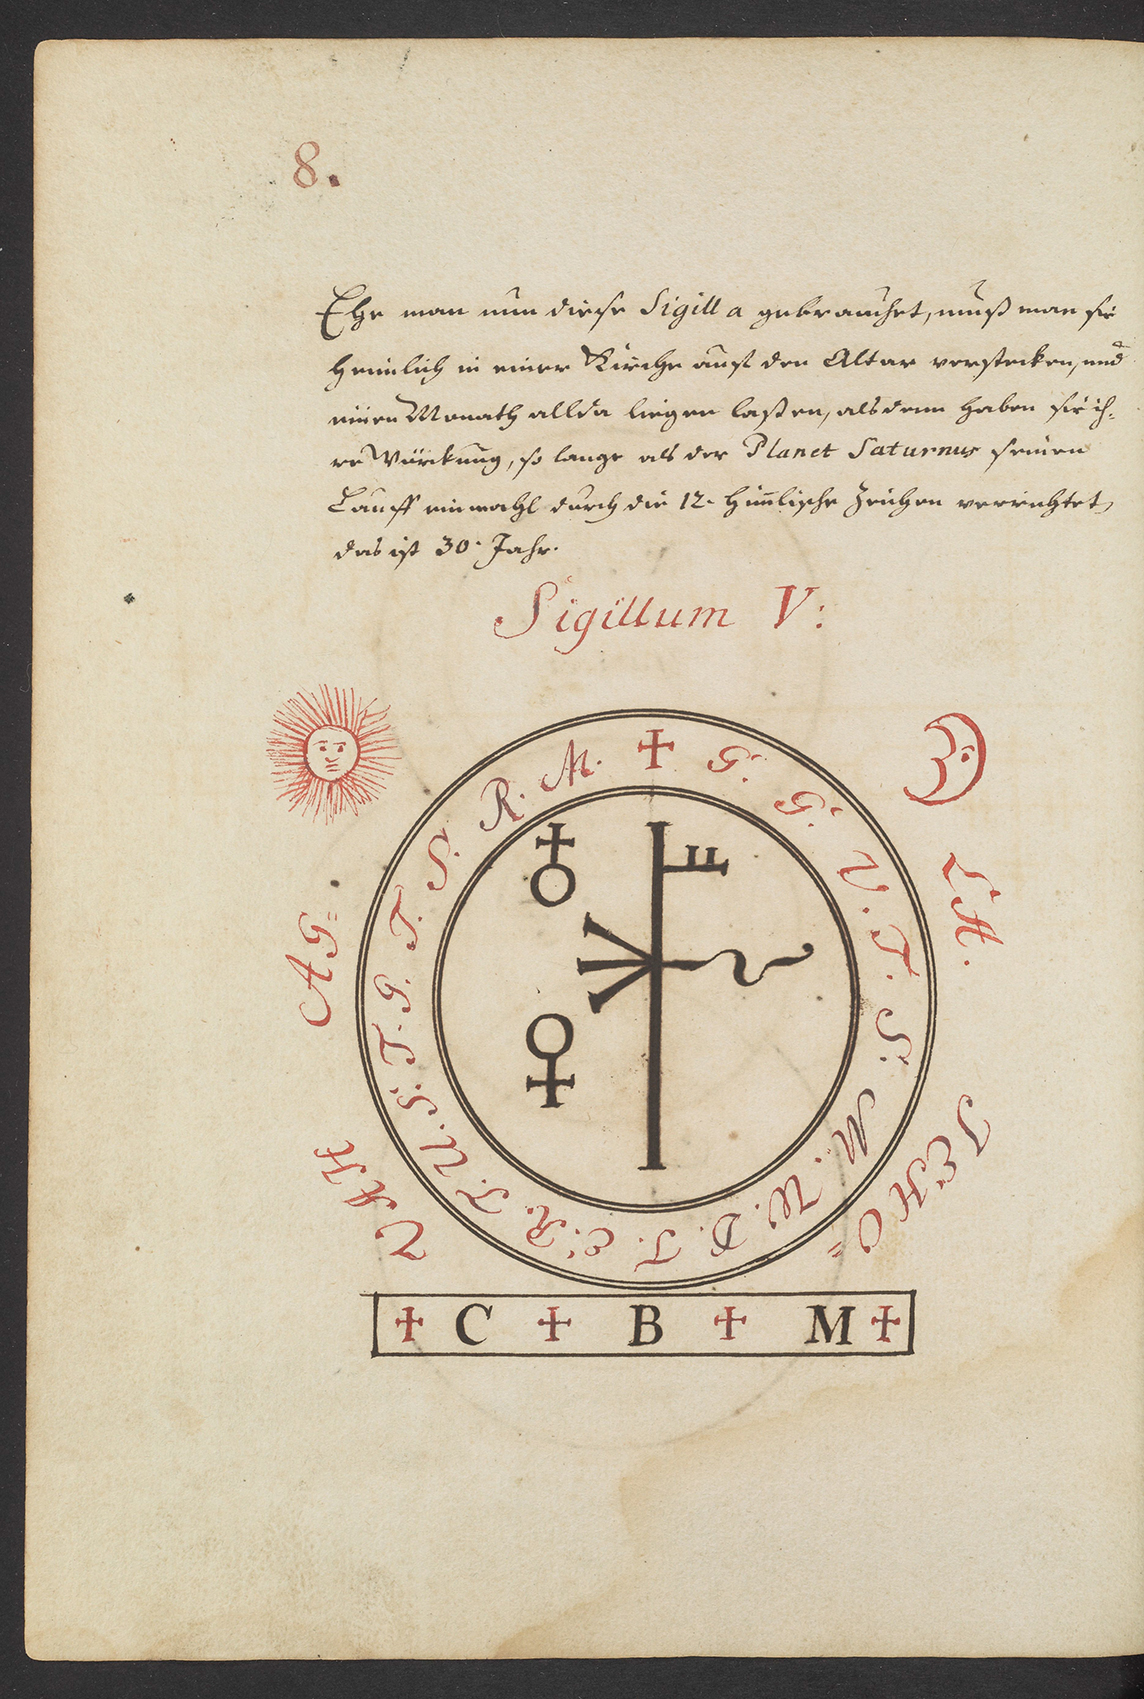 8.
Ehe man nun diese Sigilla gebrauchet, muß man sie
heimlich in einer Kirche auff den Altar verstecken, und
einen Monath allda liegen laßen, alsdenn haben sie ih=
re Würckung, so lange als der Planet Saturnus seinen
Lauff einmahl durch die 12. Himlische Zeichen verrichtet,
das ist 30. Jahr.
Sigillum V:
M. ✝ G. G. V. T. S. M. W. D. T. C. R. T. U. S. T. G. T. S. R.
AG=
LA.
JEHO=
VAH
✝ C ✝ B ✝ M ✝